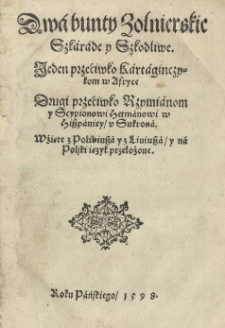 Dwá bunty Zolnierskie
Szkárade y Szkodliwe.
Jeden przećiwko Kártáginczy-
kom w Afryce
Drugi przećiwko Rzymiánom
y Scypionowi Hetmánowi w
Hiszpániey / v Sukroná.
Wźiete z Polibiuszá y z Liuiuszá / y ná
Polski ięzyk przełożone.
Roku Páńskiego / 1598.